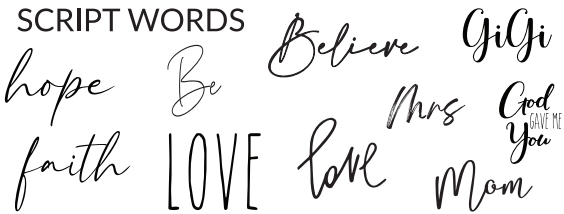 SCRIPT WORDS
Believe
GiGi
hope
Be
Mrs
God
GAVE ME
You
faith
LOVE
love
Mom